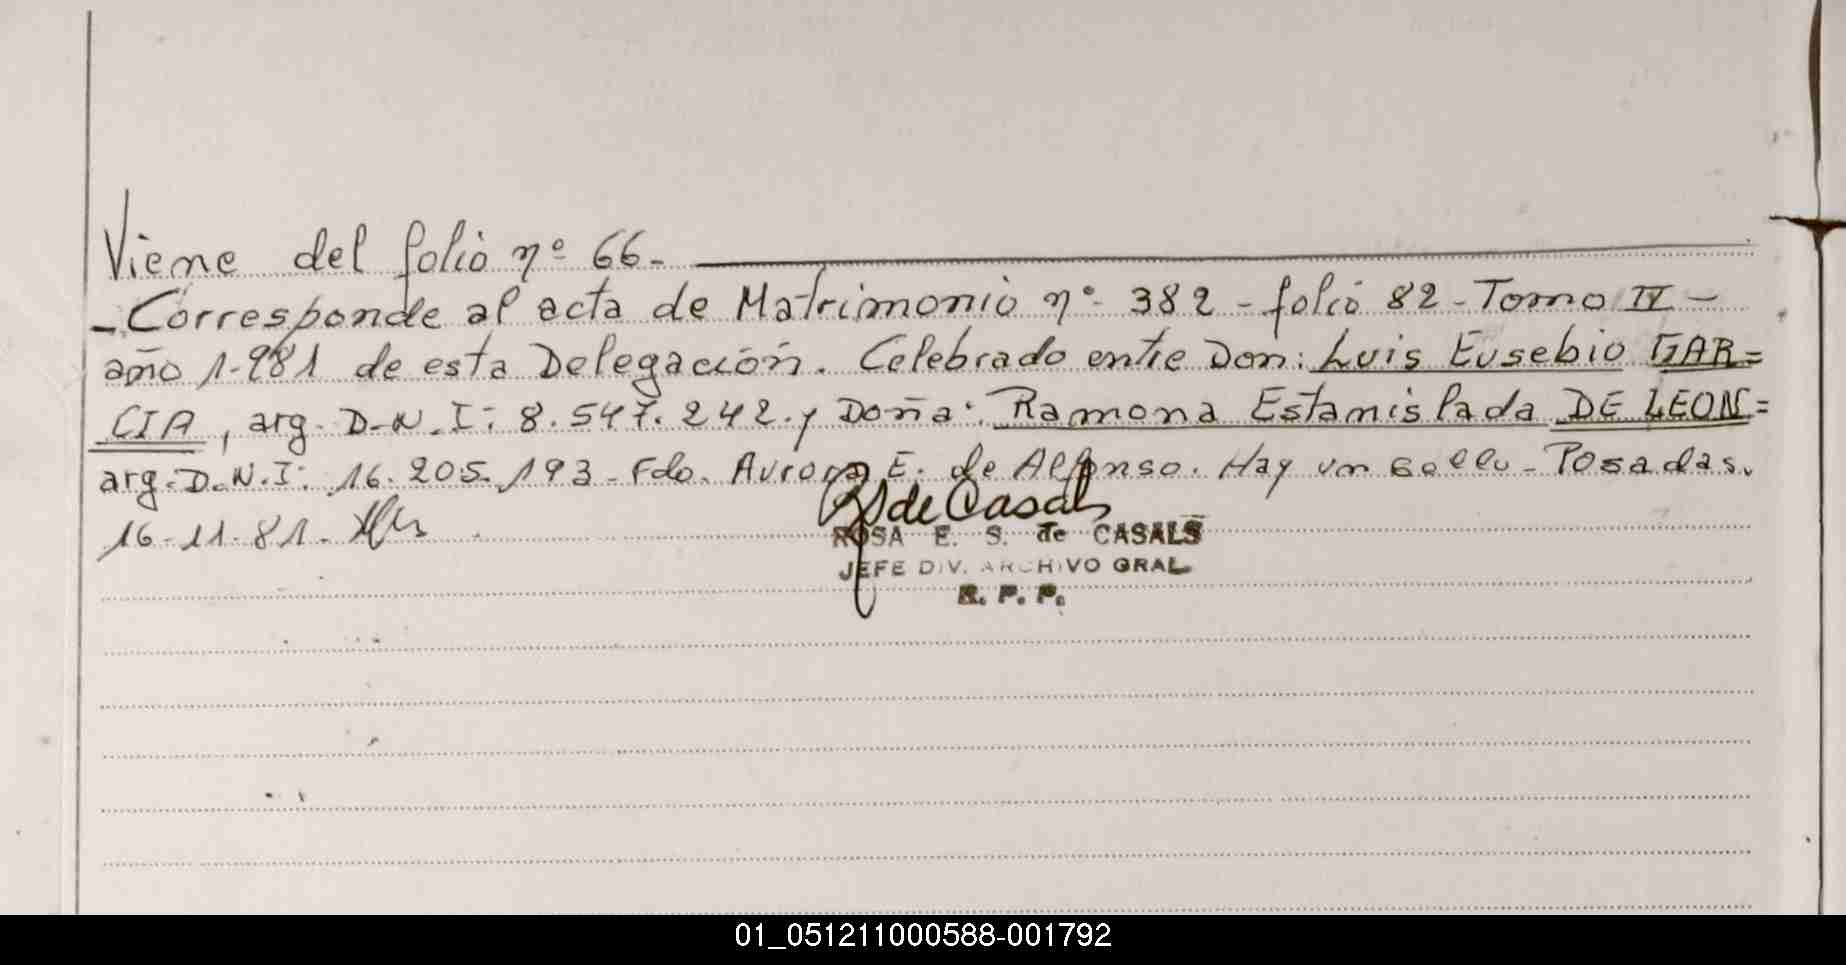 Viene del folio nº 66.-
- Corresponde al acta de Matrimonio nº 382 - folio 82 - Tomo IV -
año 1.981 de esta Delegación. Celebrado entre Don: Luis Eusebio GAR=
CIA, arg. D.N.I: 8.547.242. y Doña: Ramona Estanislada DE LEON=
arg. D.N.I: 16.205.193 - Fdo. Aurora E. de Alfonso. Hay un sello - Posadas.
16-11-81.
de Casals
ROSA E. S. de CASALS
JEFE DIV. ARCHIVO GRAL
R. P. P.
01_051211000588-001792